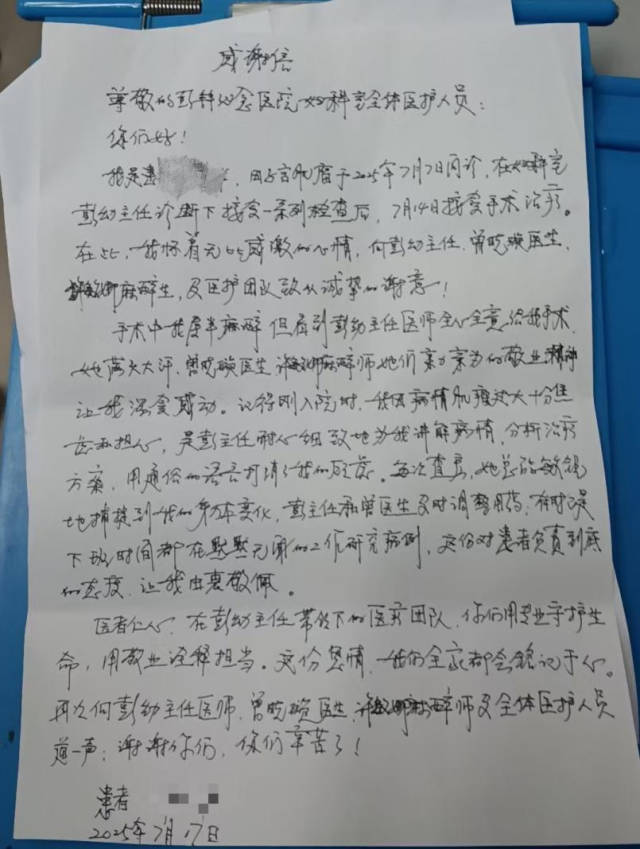 感谢信
尊敬的彭拜纪念医院妇科室全体医护人员：
你们好！
我是患，因子宫肌瘤于2025年7月7日问诊，在妇科室
彭幼主任诊断下接受一系列检查后，7月14日接受手术治疗。
在此，我怀着无比感激的心情，向彭幼主任、曾晓医生、
麻醉生，及医护团队致以诚挚的谢意！
手术中我是半麻醉但看到彭幼主任医师全心全意给我手术，
她满头大汗，曾晓医生麻醉师她们亲力亲为的敬业精神
让我深受感动。记得刚入院时，我因病情肌瘤过大十分焦
虑和担心，是彭主任耐心细致地为我讲解病情，分析治疗
方案，用通俗的语言打消了我的顾虑。每次查房，她总能敏锐
地捕捉到我的身体变化，彭主任和曾医生及时调整用药，有时是
下班时间都在默默无闻的工作研究病例，这份对患者负责到底
的态度，让我由衷敬佩。
医者仁心，在彭幼主任带领下的医疗团队，你们用专业守护生
命，用敬业诠释担当。这份恩情，我们全家都会铭记于心。
再次向彭幼主任医师，曾晓医生，麻醉师及全体医护人员
道一声：谢谢你们，你们辛苦了！
患者
2025年7月17日